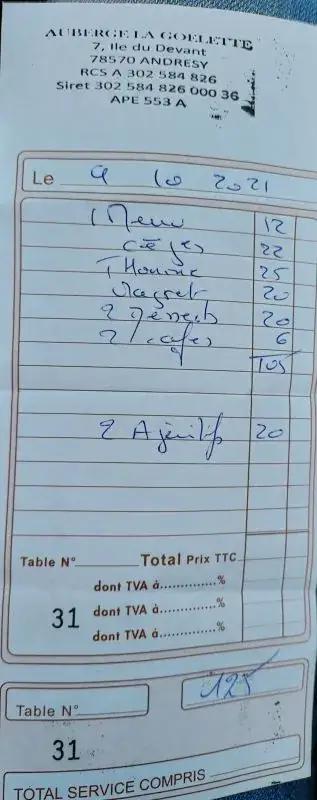 AUBERGE LA GOELETTE
7, Ile du Devant
78570 ANDRESY
RCS A 302 584 826
Siret 302 584 826 000 36
APE 553 A
Le 9 10 2021
1 Menu 12
cèpes 22
1 Homard 25
Magret 20
2 Desserts 20
2 cafés 6
105
2 Apéritifs 20
Table N° Total Prix TTC
dont TVA à..............%
31 dont TVA à..............%
dont TVA à..............%
125
Table N°
31
TOTAL SERVICE COMPRIS